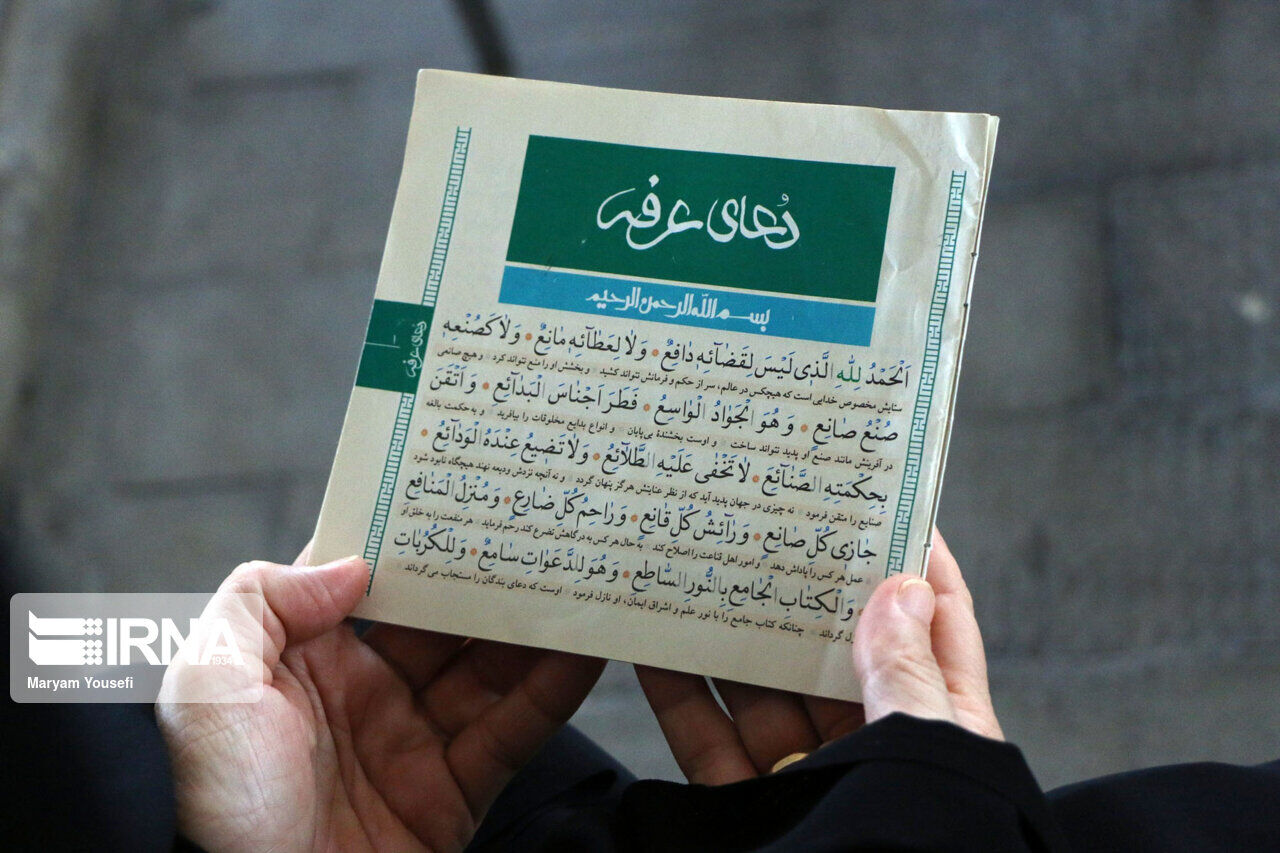 دُعای عرفه
بسم الله الرحمن الرحیم
اَلْحَمْدُ لِلّٰهِ الَّذی لَیْسَ لِقَضآئِهِ دافِعٌ * وَلا لِعَطآئِهِ مانِعٌ * وَلا کَصُنْعِهِ
ستایش مخصوص خدایی است که هیچکس در عالم، سر از حکم و فرمانش نتواند کشید * و بخشش او را منع نتواند کرد * و هیچ صانعی
صُنْعُ صانِعٍ * وَ هُوَ الْجَوادُ الْواسِعُ * فَطَرَ اَجْناسَ الْبَدآئِعِ * وَ اَتْقَنَ
در آفرینش مانند صنع او پدید نتواند ساخت * و اوست بخشندهٔ بی‌پایان * و انواع بدایع مخلوقات را بیافرید * و به حکمت بالغه
بِحِکْمَتِهِ الصَّنآئِعَ * لا تَخْفی عَلَیْهِ الطَّلآئِعُ * وَلا تَضیعُ عِنْدَهُ الْوَدآئِعُ *
صنایع را متقن فرمود * نه چیزی در جهان پدید آید که از نظر عنایتش هرگز پنهان گردد * و نه آنچه نزدش ودیعه نهند هیچگاه نابود شود
جازی کُلِّ صانِعٍ * وَ رآئِشُ کُلِّ قانِعٍ * وَ راحِمُ کُلِّ ضارِعٍ * وَ مُنْزِلُ الْمَنافِعِ
عمل هر کس را پاداش دهد * و امور اهل قناعت را اصلاح کند * به حال هر کس به درگاهش تضرع کند رحم فرماید * هر منفعت را به خلق او
* وَ الْکِتابِ الْجامِعِ بِالنُّورِ السّاطِعِ * وَ هُوَ لِلدَّعَواتِ سامِعٌ * وَ لِلْکُرُباتِ
گرداند * چنانکه کتاب جامع را با نور علم و اشراق ایمان، او نازل فرمود * اوست که دعای بندگان را مستجاب می‌گرداند *
دعای عرفه
۱
IRNA
1934
Maryam Yousefi